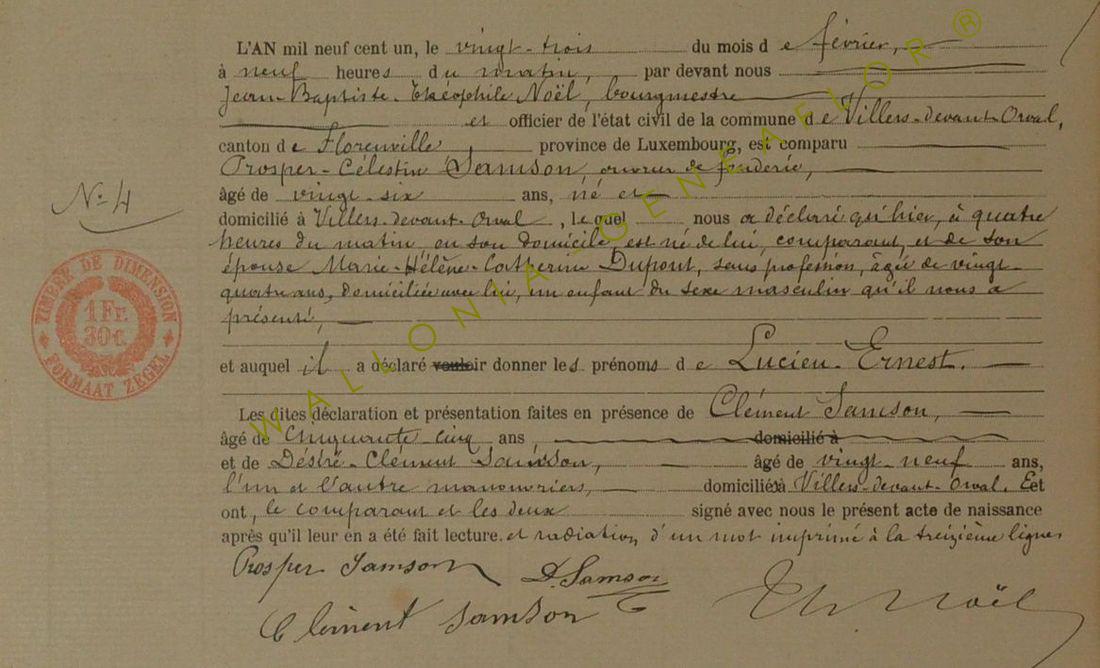 L'AN mil neuf cent un, le vingt-trois du mois de février,
à neuf heures du matin, par devant nous
Jean-Baptiste-Théophile Noël, bourgmestre
et officier de l'état civil de la commune de Villers-devant-Orval,
canton de Florenville province de Luxembourg, est comparu
Prosper-Célestin Samson, ouvrier de fonderie,
âgé de vingt-six ans, né et
domicilié à Villers-devant-Orval, lequel nous a déclaré qu'hier, à quatre
heures du matin, en son domicile, est né de lui, comparant, et de son
épouse Marie-Hélène-Catherine Dupont, sans profession, âgée de vingt-
quatre ans, domiciliée avec lui, un enfant du sexe masculin qu'il nous a
présenté,
N° 4
TIMBRE DE DIMENSION
1 Fr.
30 c.
FORMAAT ZEGEL
et auquel il a déclaré vouloir donner les prénoms de Lucien-Ernest.
Les dites déclaration et présentation faites en présence de Clément Samson,
âgé de cinquante-cinq ans, domicilié à
et de Désiré-Clément Samson, âgé de vingt-neuf ans,
l'un et l'autre manouvriers, domiciliés à Villers-devant-Orval. Et
ont, le comparant et les deux signé avec nous le présent acte de naissance
après qu'il leur en a été fait lecture. et radiation d'un mot imprimé à la treizième ligne
Prosper Samson D. Samson
Clément Samson Th Noël
WALLONIA-GENEAFLOR ®